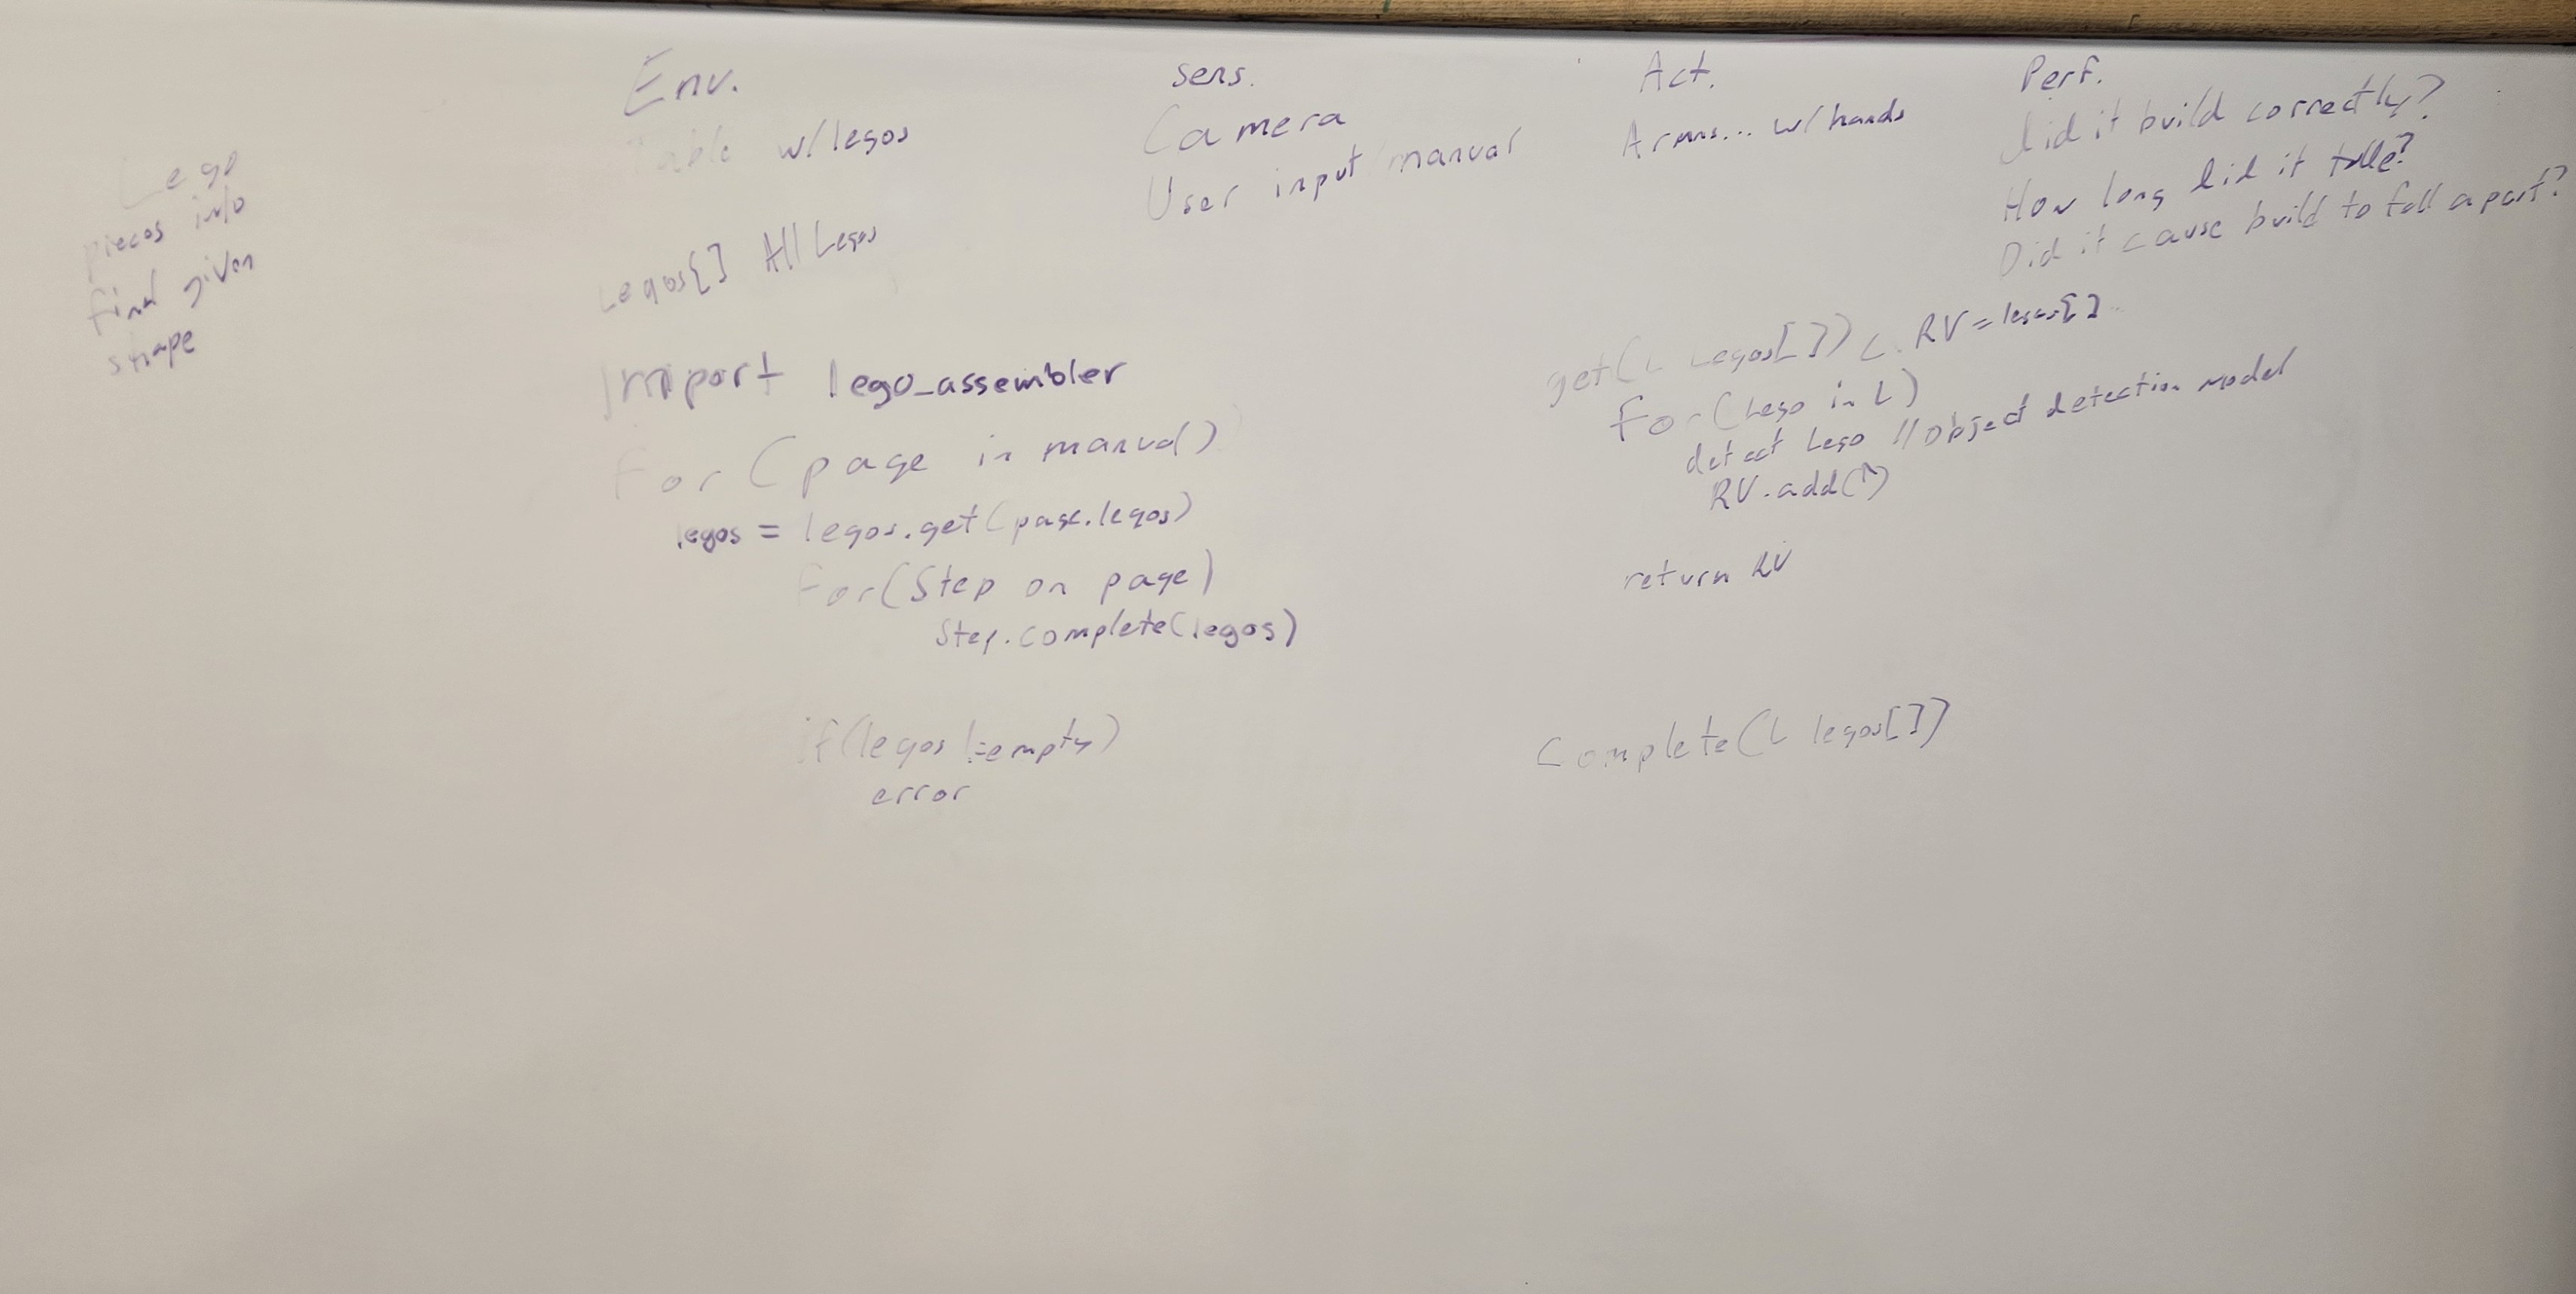 Lego
pieces into
final given
shape
Env.
Table w/legos
Legos[] All Legos
Import lego_assembler
For (page in manual)
legos = legos.get(page.legos)
For(Step on page)
Step.complete(legos)
if(legos !=empty)
error
Sens.
Camera
User input manual
Act.
Arms... w/hands
Perf.
Did it build correctly?
How long did it take?
Did it cause build to fall apart?
get(L Legos[]) { RV = legos[]
For(Lego in L)
detect Lego //object detection model
RV.add(↑)
return RV
Complete(L legos[])